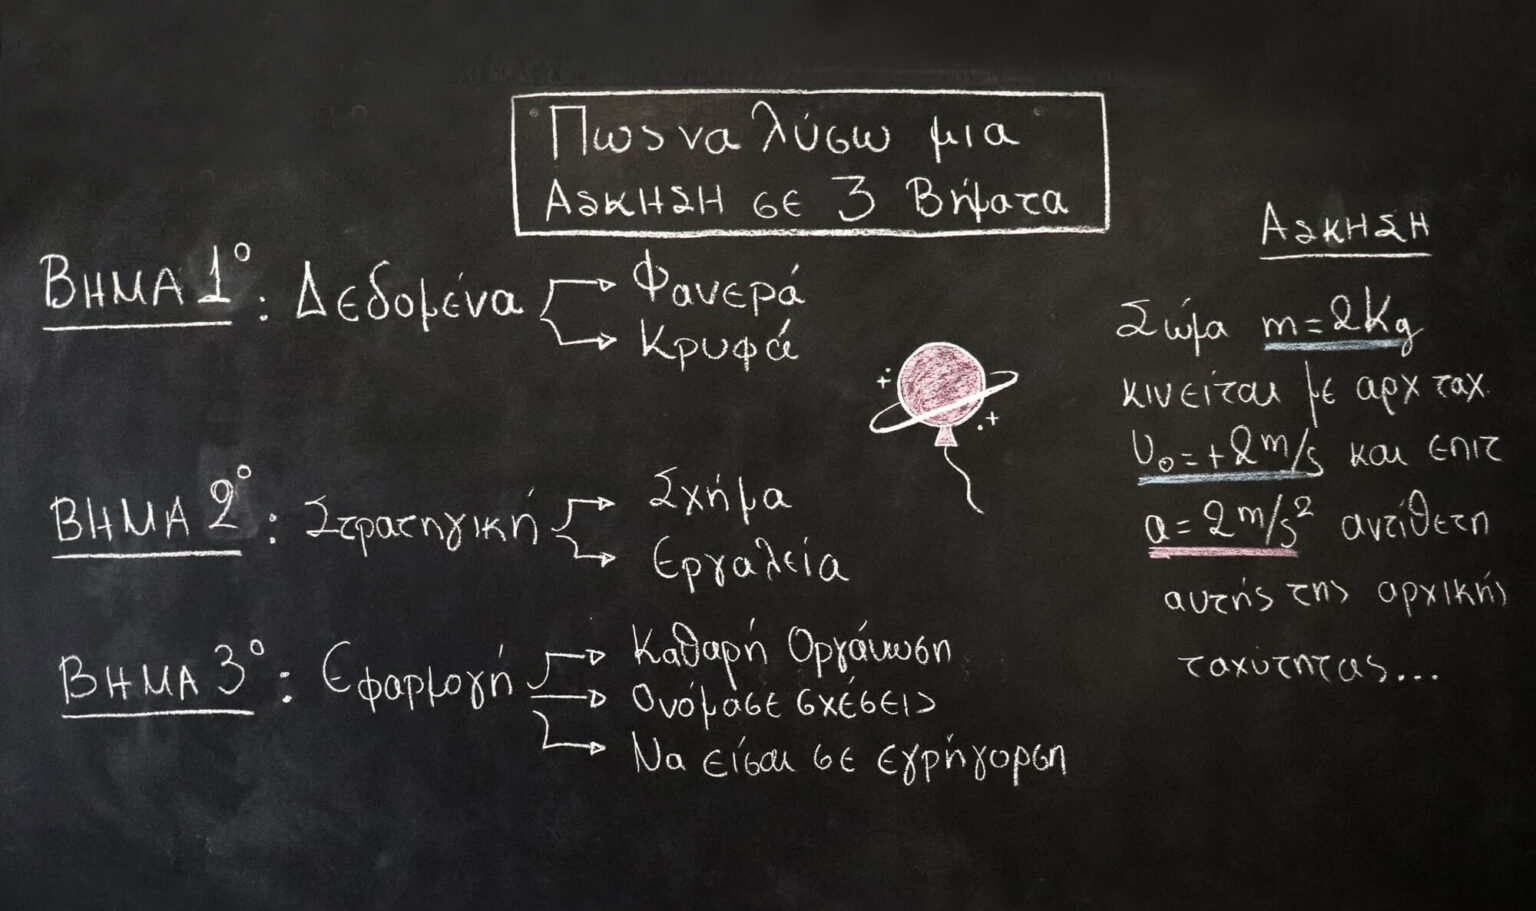 Πως να λύσω μια
ΑΣΚΗΣΗ σε 3 Βήματα
ΒΗΜΑ 1ο : Δεδομένα
Φανερά
Κρυφά
ΒΗΜΑ 2ο : Στρατηγική
Σχήμα
Εργαλεία
ΒΗΜΑ 3ο : Εφαρμογή
Καθαρή Οργάνωση
Ονόμασε σχέσεις
Να είσαι σε εγρήγορση
ΑΣΚΗΣΗ
Σώμα m=2Kg
κινείται με αρχ ταχ.
υ₀=+2m/s και επιτ
a=2m/s² αντίθετη
αυτής της αρχικής
ταχύτητας...